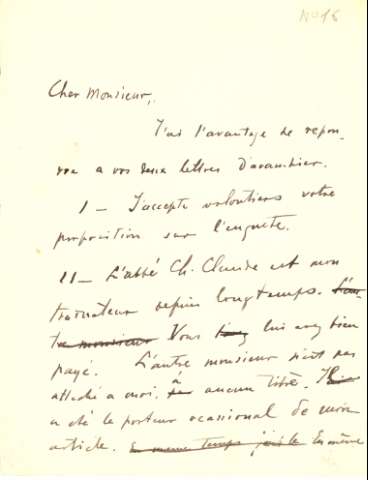 No 16
Cher Monsieur,
J'ai l'avantage de repon-
dre a vos deux lettres D'avanthier.
I — J'accepte volontiers votre
proposition sur l'enquete.
II — L'abbé Ch. Claude est mon
traducteur depuis longtemps. L'au-
tre monsieur Vous lui avez bien
payé. L'autre monsieur n'est pas
attaché a moi à aucun titre. Il
a été le porteur ocassional de mon
article. En meme temps je le En même